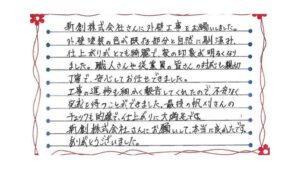 新創株式会社さんに外壁工事をお願いしました。
外壁塗装の色が既存部分と自然に馴染み、
仕上がりがとても綺麗で、家の印象が明るくなり
ました。職人さんや従業員の皆さんの対応も親切
丁寧で、安心してお任せできました。
工事の進捗も細かく報告してくれたので不安なく
完成を待つことができました。最後の
チェックも的確で、仕上がりに大満足です。
新創株式会社さんにお願いして、本当に良かったです。
ありがとうございました。